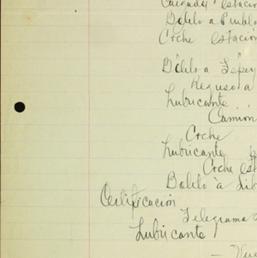 Boleto a Puebl
Coche estación
Boleto a Tepey
Regreso a
Lubricante . .
Camion
Coche
Lubricante
Coche est
Boleto à
Certificación
Telegrama
Lubricante